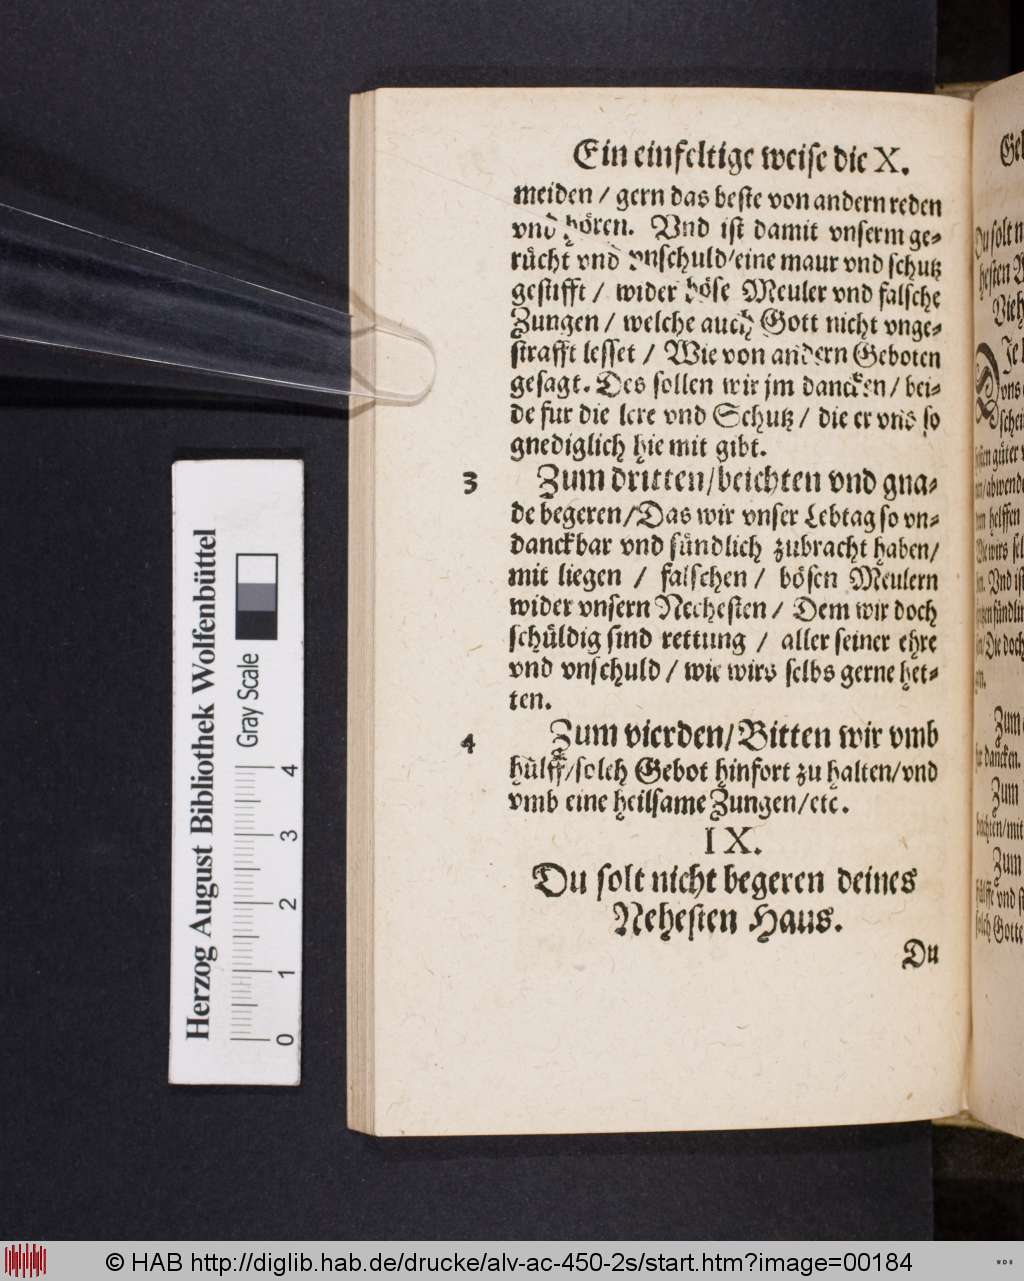 Ein einfeltige weise die X.
meiden / gern das beste von andern reden
vnd hören. Vnd ist damit vnserm ge-
rücht vnd vnschuld/eine maur vnd schutz
gestifft / wider böse Meuler vnd falsche
Zungen / welche auch Gott nicht vnge-
strafft lesset / Wie von andern Geboten
gesagt. Des sollen wir jm dancken / bei-
de fur die lere vnd Schutz / die er vns so
gnediglich hie mit gibt.
3 Zum dritten/beichten vnd gna-
de begeren/Das wir vnser Lebtag so vn-
danckbar vnd sündlich zubracht haben/
mit liegen / falschen / bösen Meulern
wider vnsern Nechesten / Dem wir doch
schüldig sind rettung / aller seiner ehre
vnd vnschuld / wie wirs selbs gerne het-
ten.
4 Zum vierden/Bitten wir vmb
hülff/solch Gebot hinfort zu halten/vnd
vmb eine heilsame Zungen/etc.
IX.
Du solt nicht begeren deines
Nehesten Haus.
Du
Herzog August Bibliothek Wolfenbüttel
Gray Scale
0 1 2 3 4
© HAB http://diglib.hab.de/drucke/alv-ac-450-2s/start.htm?image=00184